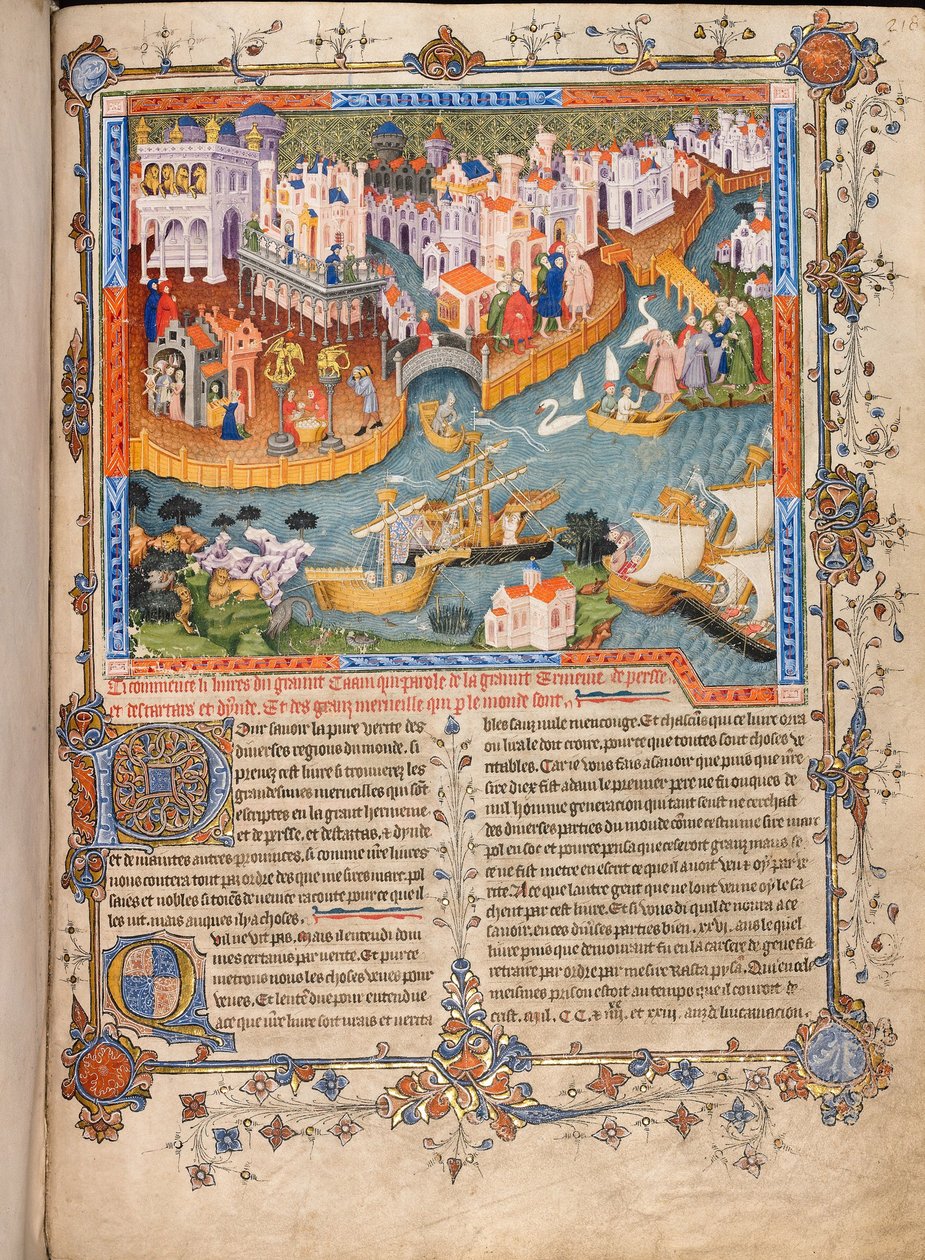 218
Ci commence li liures du graunt Caam qui parole de la graunt Ermenie de persse
et des tartars et dynde. Et des granz merueille qui p le monde sont.
Pour sauoir la pure verite des
diuerses regions du monde. si
prenez cest liure si trouuerez les
grandesimes merueilles qui sōt
escriptes en la grant hermenie
et de persse. et des tartas. & dynde
et de maintes autres prouinces. si comme nr̄e liures
nous contera tout par ordre des que mesires marc pol
saiges et nobles citoiēs de uenice raconte pour ce que il
les uit. mais auques il hya choses.
Quil ne vit pas. Mais il entendi dom
mes certains par verite. Et pur ce
metrons nous les choses veues pour
veues. Et lentēdue pour entendue
a ce que nr̄e liure soit urais et uerita
bles sanz nule mencouge. Et chascūs qui ce liure orra
ou lira le doit croire. pource que toutes sont choses ve
ritables. Car ie vous fais a sauoir que puis que nr̄e
sire diex fist adam le premier pere ne fu onques de
nul homme generacion qui tant seust ne cerchast
des diuerses parties du monde cōme cestui mesire marc
pol en sot et pource pensa que ce seroit granz maus se
ce ne fust metre en escrit ce que il auoit veu & oy par ve
rite. A ce que lautre gent que ne lont veu ne oy le sa
chent par cest liure. Et si vous di quil demora a ce
sauoir. en ces diuses parties bien .xxvi. ans le quel
liure puis que demourant fu en la carsere de gene fist
retraire par ordre par mesire Rasta pysā. Qui en cele
meismes prison estoit au temps que il couroit de
crist. Mil. CC. iiii.xx et xviii. anz de lincarnacion.